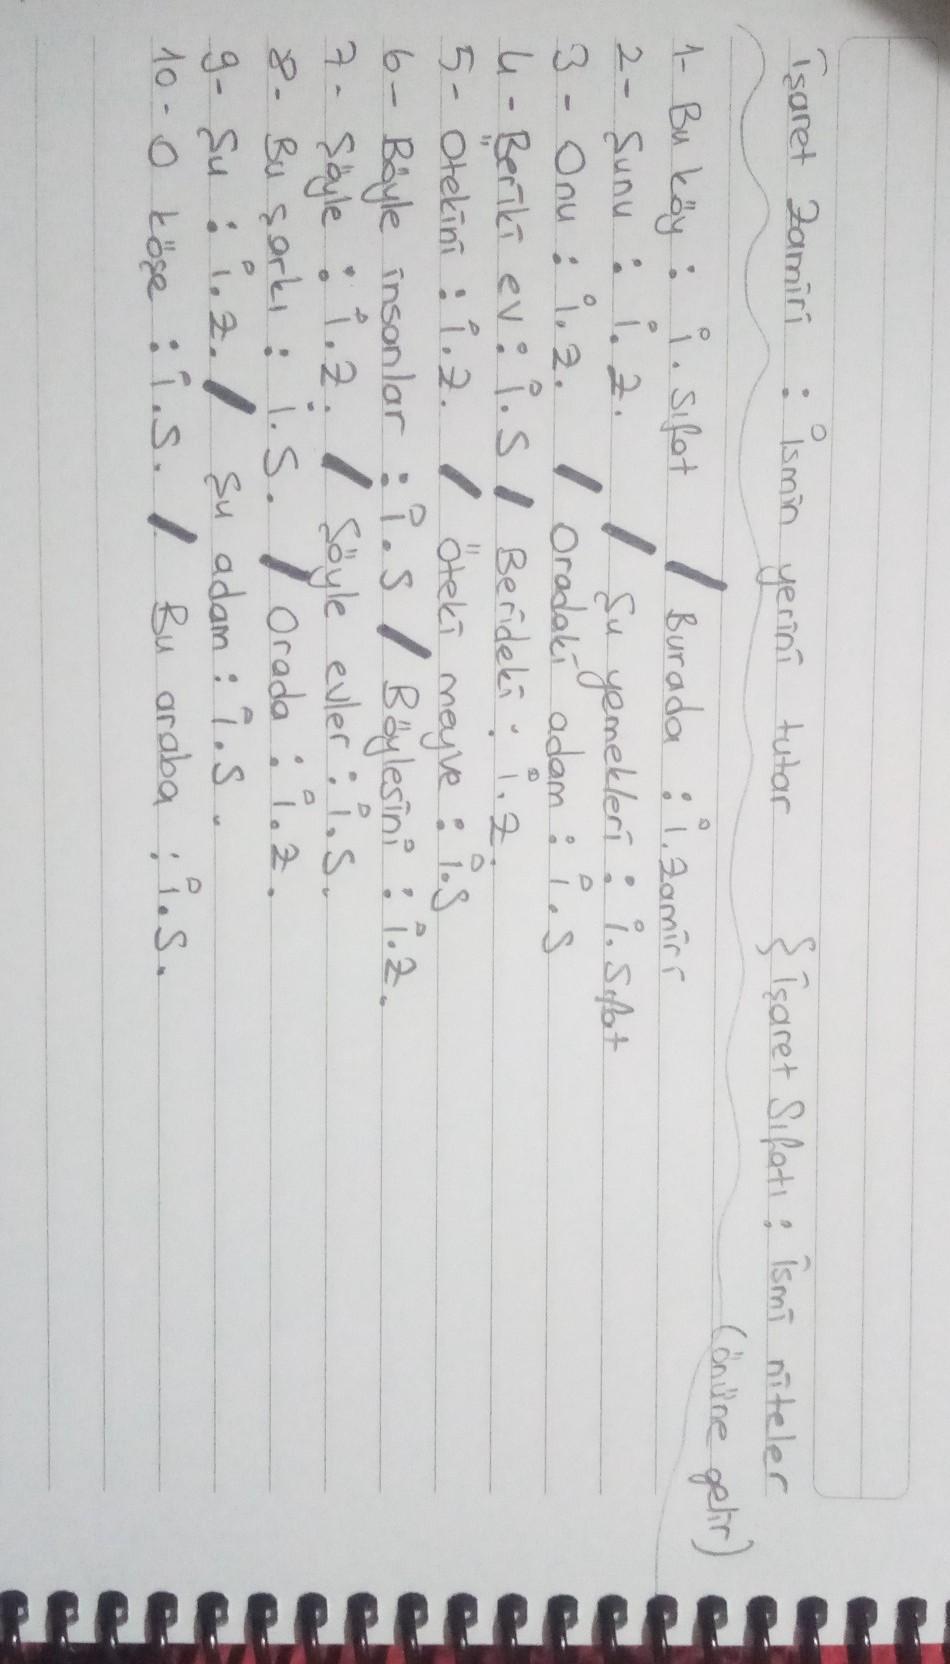 İşaret Zamiri : İsmin yerini tutar } İşaret Sıfatı : İsmi niteler
(önüne gelir)
1- Bu köy : İ. Sıfat / Burada : İ. Zamirr
2- Şunu : İ. Z. / Şu yemekleri : İ. Sıfat
3- Onu : İ. Z. / Oradaki adam : İ. S
4- Beriki ev : İ. S / Berideki : İ. Z.
5- Ötekini : İ. Z. / Öteki meyve : İ. S
6- Böyle insanlar : İ. S / Böylesini : İ. Z.
7- Şöyle : İ. Z. / Şöyle evler : İ. S.
8- Bu şarkı : İ. S. / Orada : İ. Z.
9- Şu : İ. Z. / Şu adam : İ. S.
10- O köşe : İ. S. / Bu araba : İ. S.